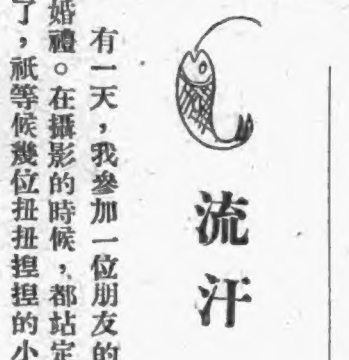 流汗
有一天，我參加一位朋友的
婚禮。在攝影的時候，都站定
了，祇等候幾位扭扭捏捏的小